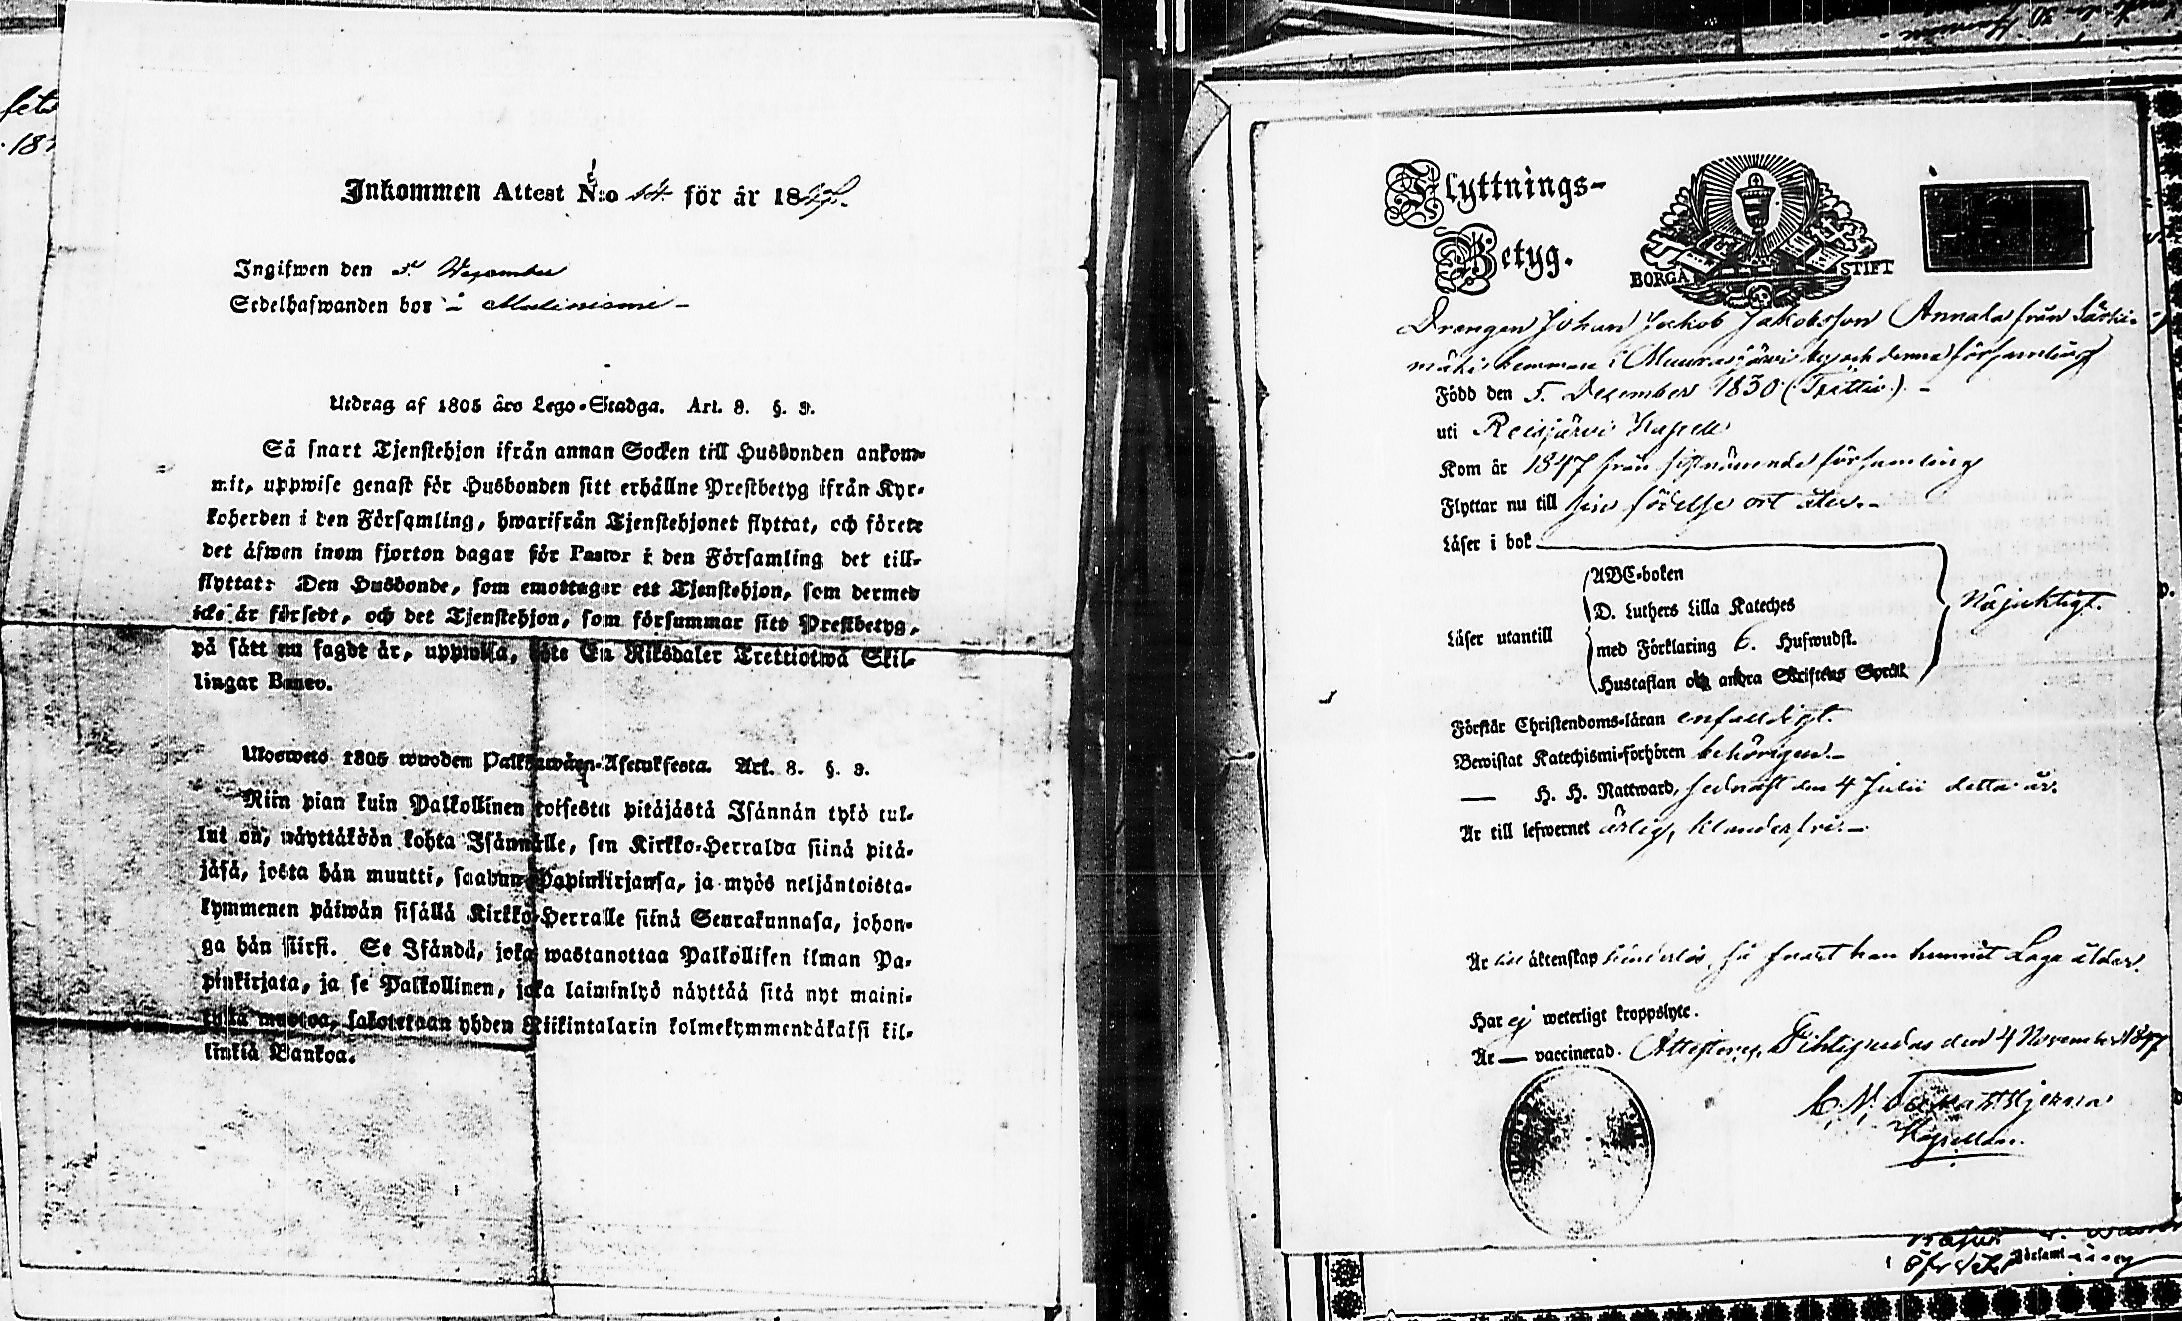 Inkommen Attest N:o 14. för år 18
Ingifwen den
Sedelhafwanden bor i
Utdrag af 1805 års Lego-Stadga. Art. 8. §. 9.
Så snart Tjenstehjon ifrån annan Socken till Husbonden ankom-
mit, uppwise genast för Husbonden sitt erhållne Prestbetyg ifrån Kyr-
koherden i den Församling, hwarifrån Tjenstehjonet flyttat, och förete
det äfwen inom fjorton dagar för Pastor i den Församling det till-
flyttat: Den Husbonde, som emottager ett Tjenstehjon, som dermed
icke är försedt, och det Tjenstehjon, som försummar sitt Prestbetyg,
på sätt nu sagdt är, uppwisa, böte En Riksdaler Trettiotwå Skil-
lingar Banco.
Ulosweto 1805 wuoden Palkkawäen-Asetuksesta. Art. 8. §. 9.
Niin pian kuin Palkollinen toisesta pitäjästä Isännän tykö tul-
lut on, näyttäköön kohta Isännälle, sen Kirkko-Herralda siinä pitä-
jäsä, josta hän muutti, saabun Papinkirjansa, ja myös neljäntoista-
kymmenen päiwän sisällä Kirkko-Herralle siinä Seurakunnasa, johon-
ga hän siirsi. Se Isändä, joka wastanottaa Palkollisen ilman Pa-
pinkirjata, ja se Palkollinen, joka laiminlyö näyttää sitä nyt maini-
tulla muotoa, sakotetaan yhden Riikintalarin kolmekymmendäkaksi kil-
linkiä Bankoa.
Flyttnings-
Betyg.
BORGÅ STIFT
Drengen Johan Jakob Jakobsson Annala från Särki-
mäki hemman i Muurasjärvi by och denna församling
Född den 5. December 1830 (Trettio). -
uti Reisjärvi Kapell
Kom år 1847 från sistnämnda församling
Flyttar nu till sin födelse ort åter. -
Läser i bok
Läser utantill
ABC-boken
D. Luthers Lilla Kateches
med Förklaring 6. Hufwudst.
Hustaflan och andra Skriftens Språk
Nöjaktigt.
Förstår Christendoms-läran enfaldigt.
Bewistat Katechismi-förhören behörigen. -
— H. H. Nattward, sednast den 4 Julii detta år.
Är till lefwernet ärlig, klanderfri. -
Är till äktenskap hinderlös, så snart han hunnit Laga ålder.
Har ej weterligt kroppslyte.
Är — vaccinerad. Attesterar, Pihtipudas den 4 November 1847
Kapellan.